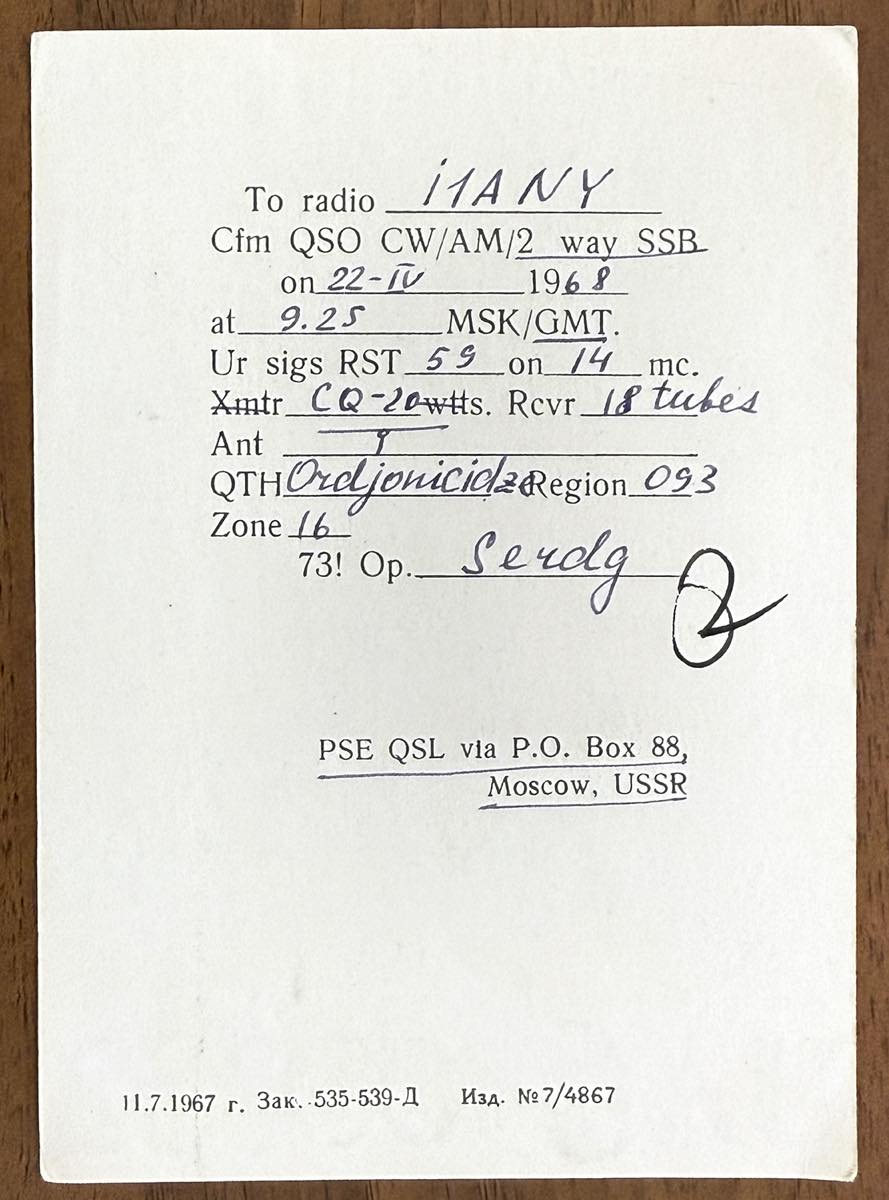 To radio i1ANY
Cfm QSO CW/AM/2 way SSB
on 22-IV 1968
at 9.25 MSK/GMT.
Ur sigs RST 59 on 14 mc.
Xmtr CQ-20wtts. Rcvr 18 tubes
Ant
QTH Ordjonicidze Region 093
Zone 16
73! Op. Serdg
PSE QSL via P.O. Box 88,
Moscow, USSR
11.7.1967 г. Зак. 535-539-Д Изд. №7/4867